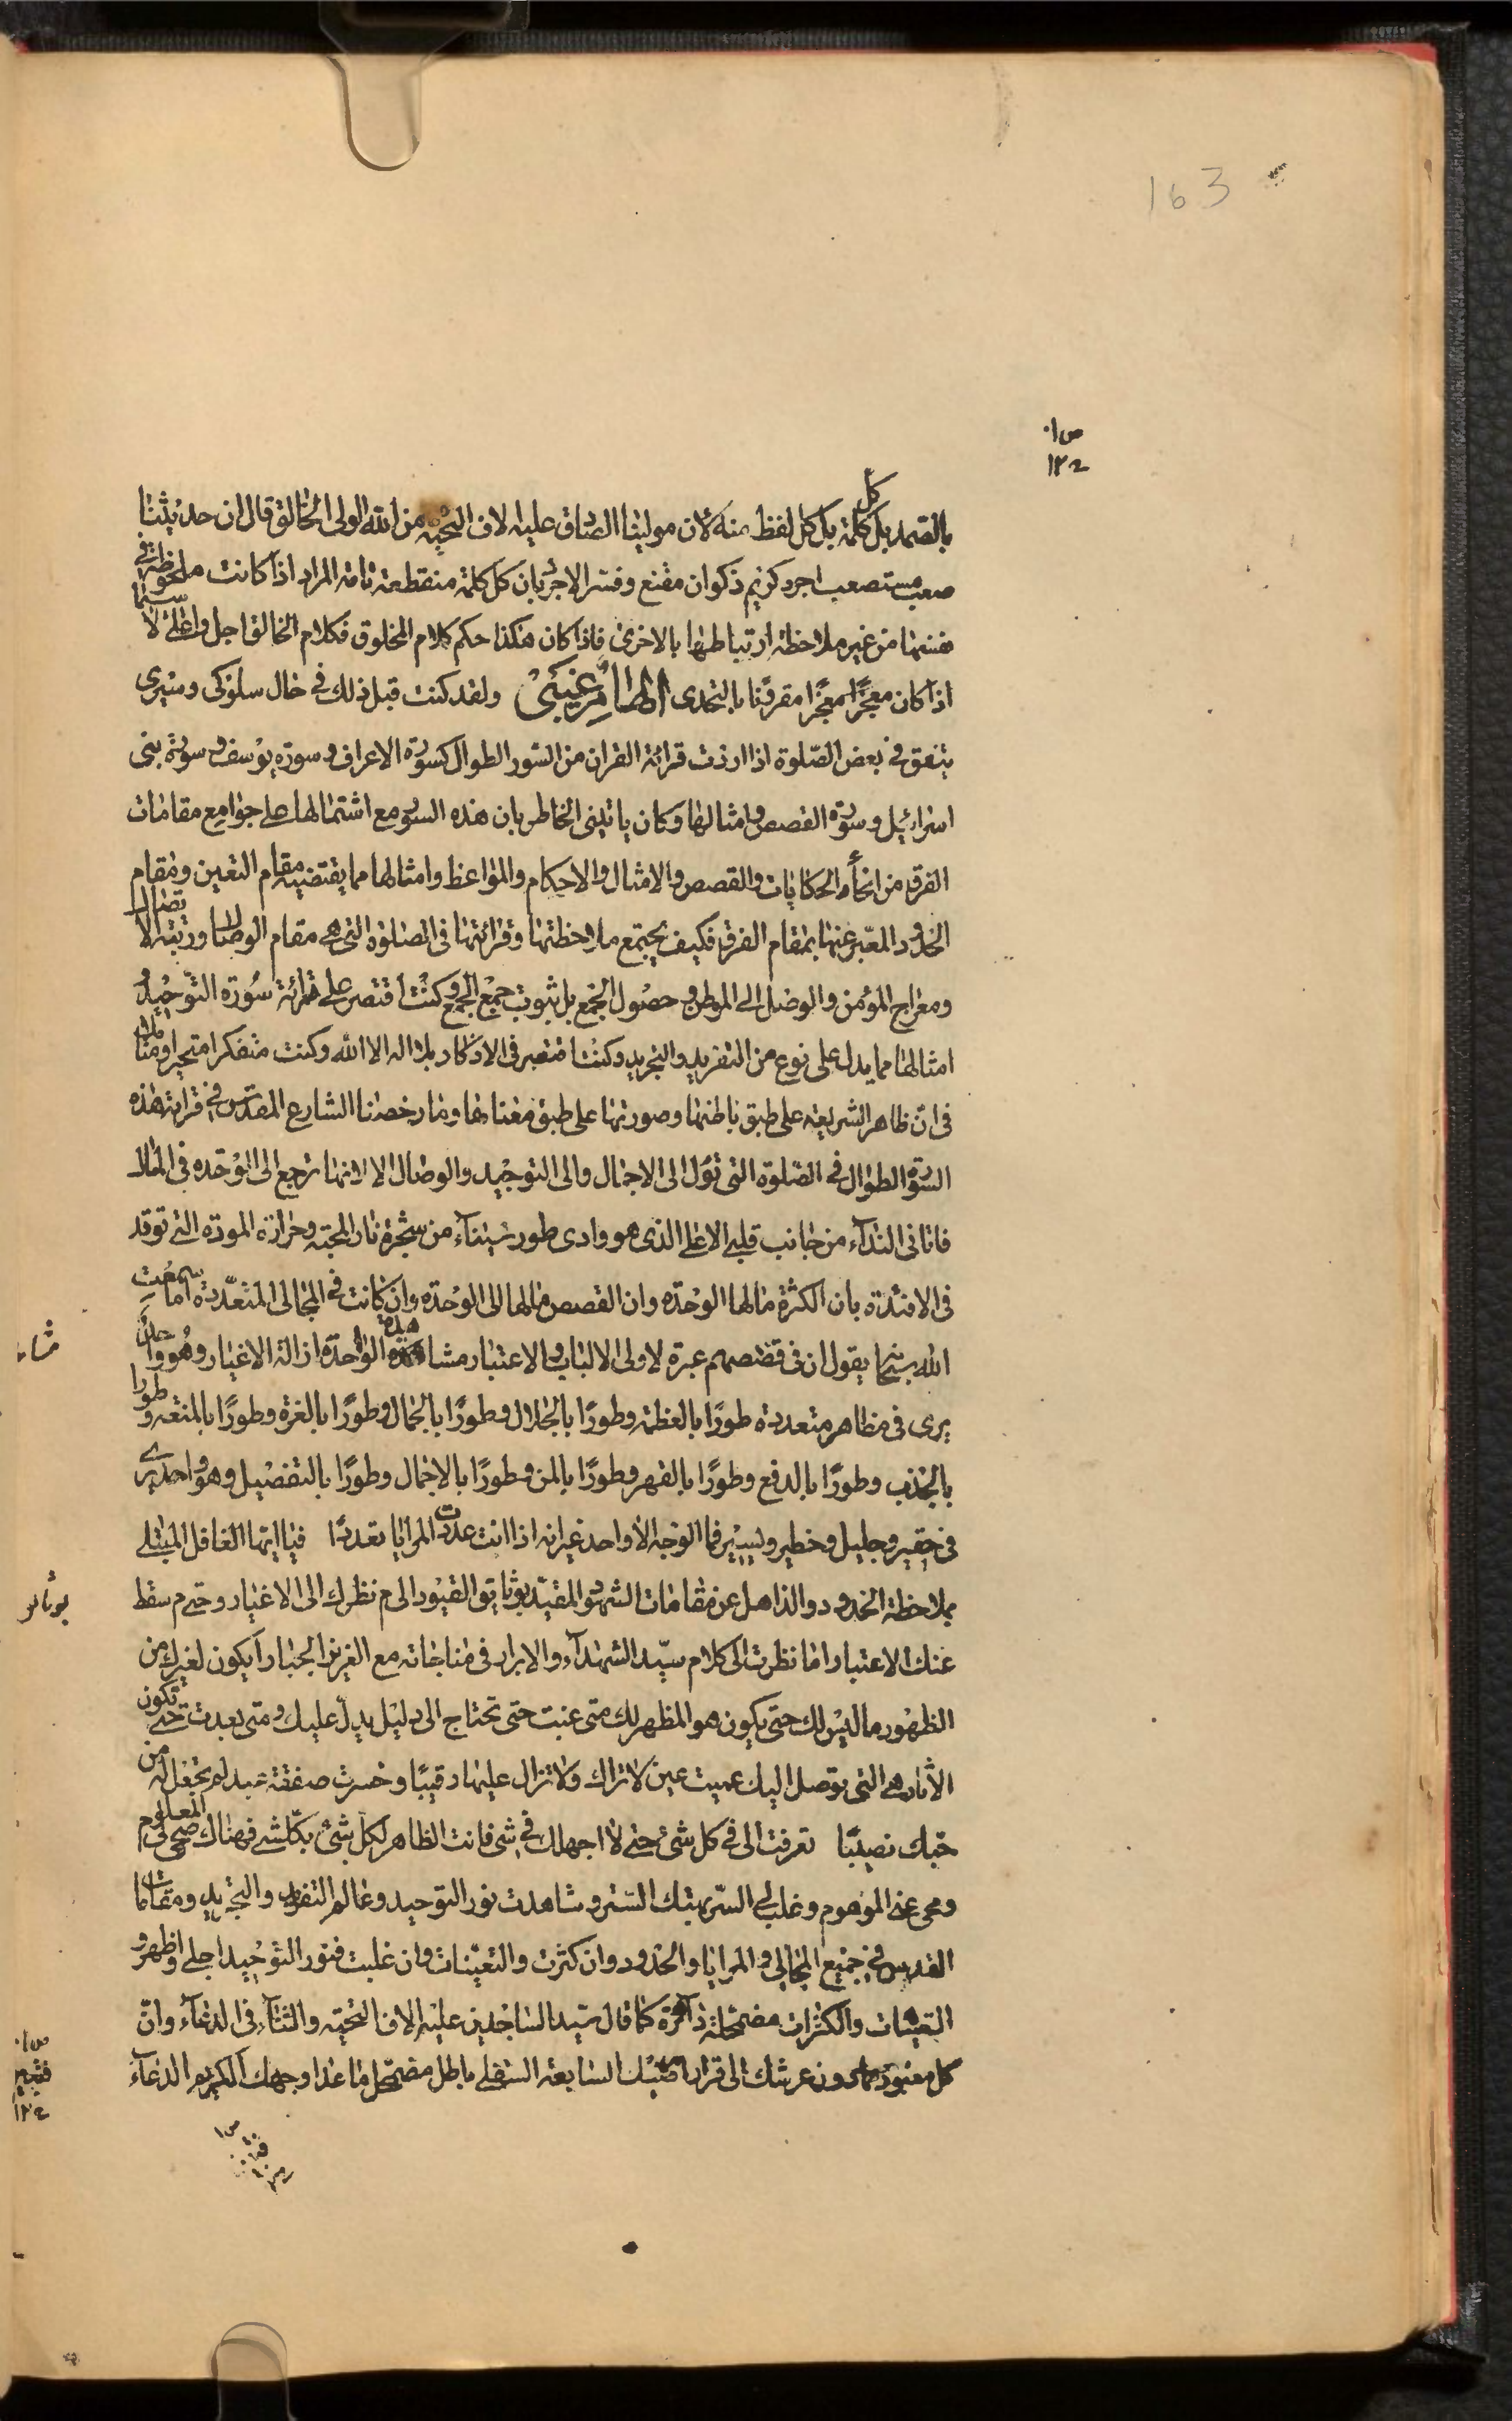 163
بالصمد بل كل كلمة بل كل لفظ منه لان مولينا الصادق عليه الاف التحية من الله الولى الخالق قال ان حديثنا
صعب مستصعب اجرد كريم ذكوان مقنع وفسر الاجرد بان كل كلمة منقطعة تامة المراد اذا كانت ملحوظة فى
نفسها من غير ملاحظة ارتباطها بالاخرى فاذا كان هكذا حكم كلام المخلوق فكلام الخالق اجل واعلى لا سيما
اذا كان معجزا مقرونا بالتحدى الهام غيبى ولقد كنت قبل ذلك فى حال سلوكى وسيرى
يتفق فى بعض الصلوة اذا اردت قرائة القران من السور الطوال كسورة الاعراف وسورة يوسف وسورة بنى
اسرائيل وسورة القصص وامثالها وكان ياتينى الخاطر بان هذه السور مع اشتمالها على جوامع مقامات
الفرق من انحاء الحكايات والقصص والامثال والاحكام والمواعظ وامثالها مما يقتضيه مقام التعين ومقام
الحدود المعبر عنها بمقام الفرق فكيف يجتمع ملاحظتها وقرائتها فى الصلوة التى هى مقام الوصال ورتبة الاتصال
ومعراج المؤمن والوصل الى الموطن وحصول الجمع بل ثبوت جمع الجمع وكنت اقتصر على قرائة سورة التوحيد و
امثالها مما يدل على نوع من التفريد والتجريد وكنت اقتصر فى الاذكار بلا اله الا الله وكنت متفكرا متحيرا ومتاملا
فى ان ظاهر الشريعة على طبق باطنها وصورتها على طبق معناها وما رخصنا الشارع المقدس فى قرائة هذه
السور الطوال فى الصلوة التى تؤل الى الاجمال والى التوحيد والوصال الا لانها ترجع الى الوحدة فى المال
فاتانى النداء من جانب قلبى الاعلى الذى هو وادى طور سيناء من شجرة نار المحبة وحرارة المودة التى توقد
فى الافئدة بان الكثرة مالها الوحدة وان القصص مالها الى الوحدة وان كانت فى المجالى المتعددة اما سمعت
الله سبحانه يقول ان فى قصصهم عبرة لاولى الالباب والاعتبار مشاهدة الوحدة ازالة الاغيار وهو واحد
يرى فى مظاهر متعددة طورا بالعظمة وطورا بالجلال وطورا بالجمال وطورا بالعزة وطورا بالمنعة وطورا
بالجذب وطورا بالدفع وطورا بالقهر وطورا بالمن وطورا بالاجمال وطورا بالتفصيل وهو واحد يرى
فى حقير وجليل وخطير ويسير فما الوجه الا واحد غير انه اذا انت عددت المرايا تعددا فيا ايها الغافل المبتلى
بملاحظة الحدود والذاهل عن مقامات الشهود المقيد بوثايق القيود الى م نظرك الى الاغيار وحتى م سقط
عنك الاعتبار اما نظرت الى كلام سيد الشهداء والابرار فى مناجاته مع العزيز الجبار ايكون لغيرك من
الظهور ما ليس لك حتى يكون هو المظهر لك متى غبت حتى تحتاج الى دليل يدل عليك ومتى بعدت حتى تكون
الاثار هى التى توصل اليك عميت عين لا تراك ولا تزال عليها رقيبا وخسرت صفقة عبد لم تجعل له من
حبك نصيبا تعرفت الى فى كل شىء حتى لا اجهلك فى شى فانت الظاهر لكل شىء بكل شىء فهناك صحى لى المعلوم
ومحى عنى الموهوم وغلب لى السر بهتك الستر وشاهدت نور التوحيد وعالم التفريد والتجريد ومقامات
القدس فى جميع المجالى والمرايا والحدود وان كثرت والتعينات وان غلبت فنور التوحيد اجلى واظهر و
التعينات والكثرات مضمحلة داثرة كما قال سيد الساجدين عليه الاف التحية والثناء فى الدعاء وان
كل معبود مما دون عرشك الى قرار ارضيك السابعة السفلى باطل مضمحل ما عدا وجهك الكريم الدعاء